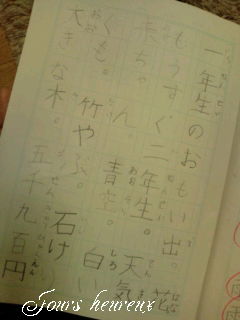 一年生のおもい出。花
もうすぐ二年生。天気
赤ちゃん。青空。白い
くも。竹やぶ。石け
大きな木。五千九百円
Jours heureux